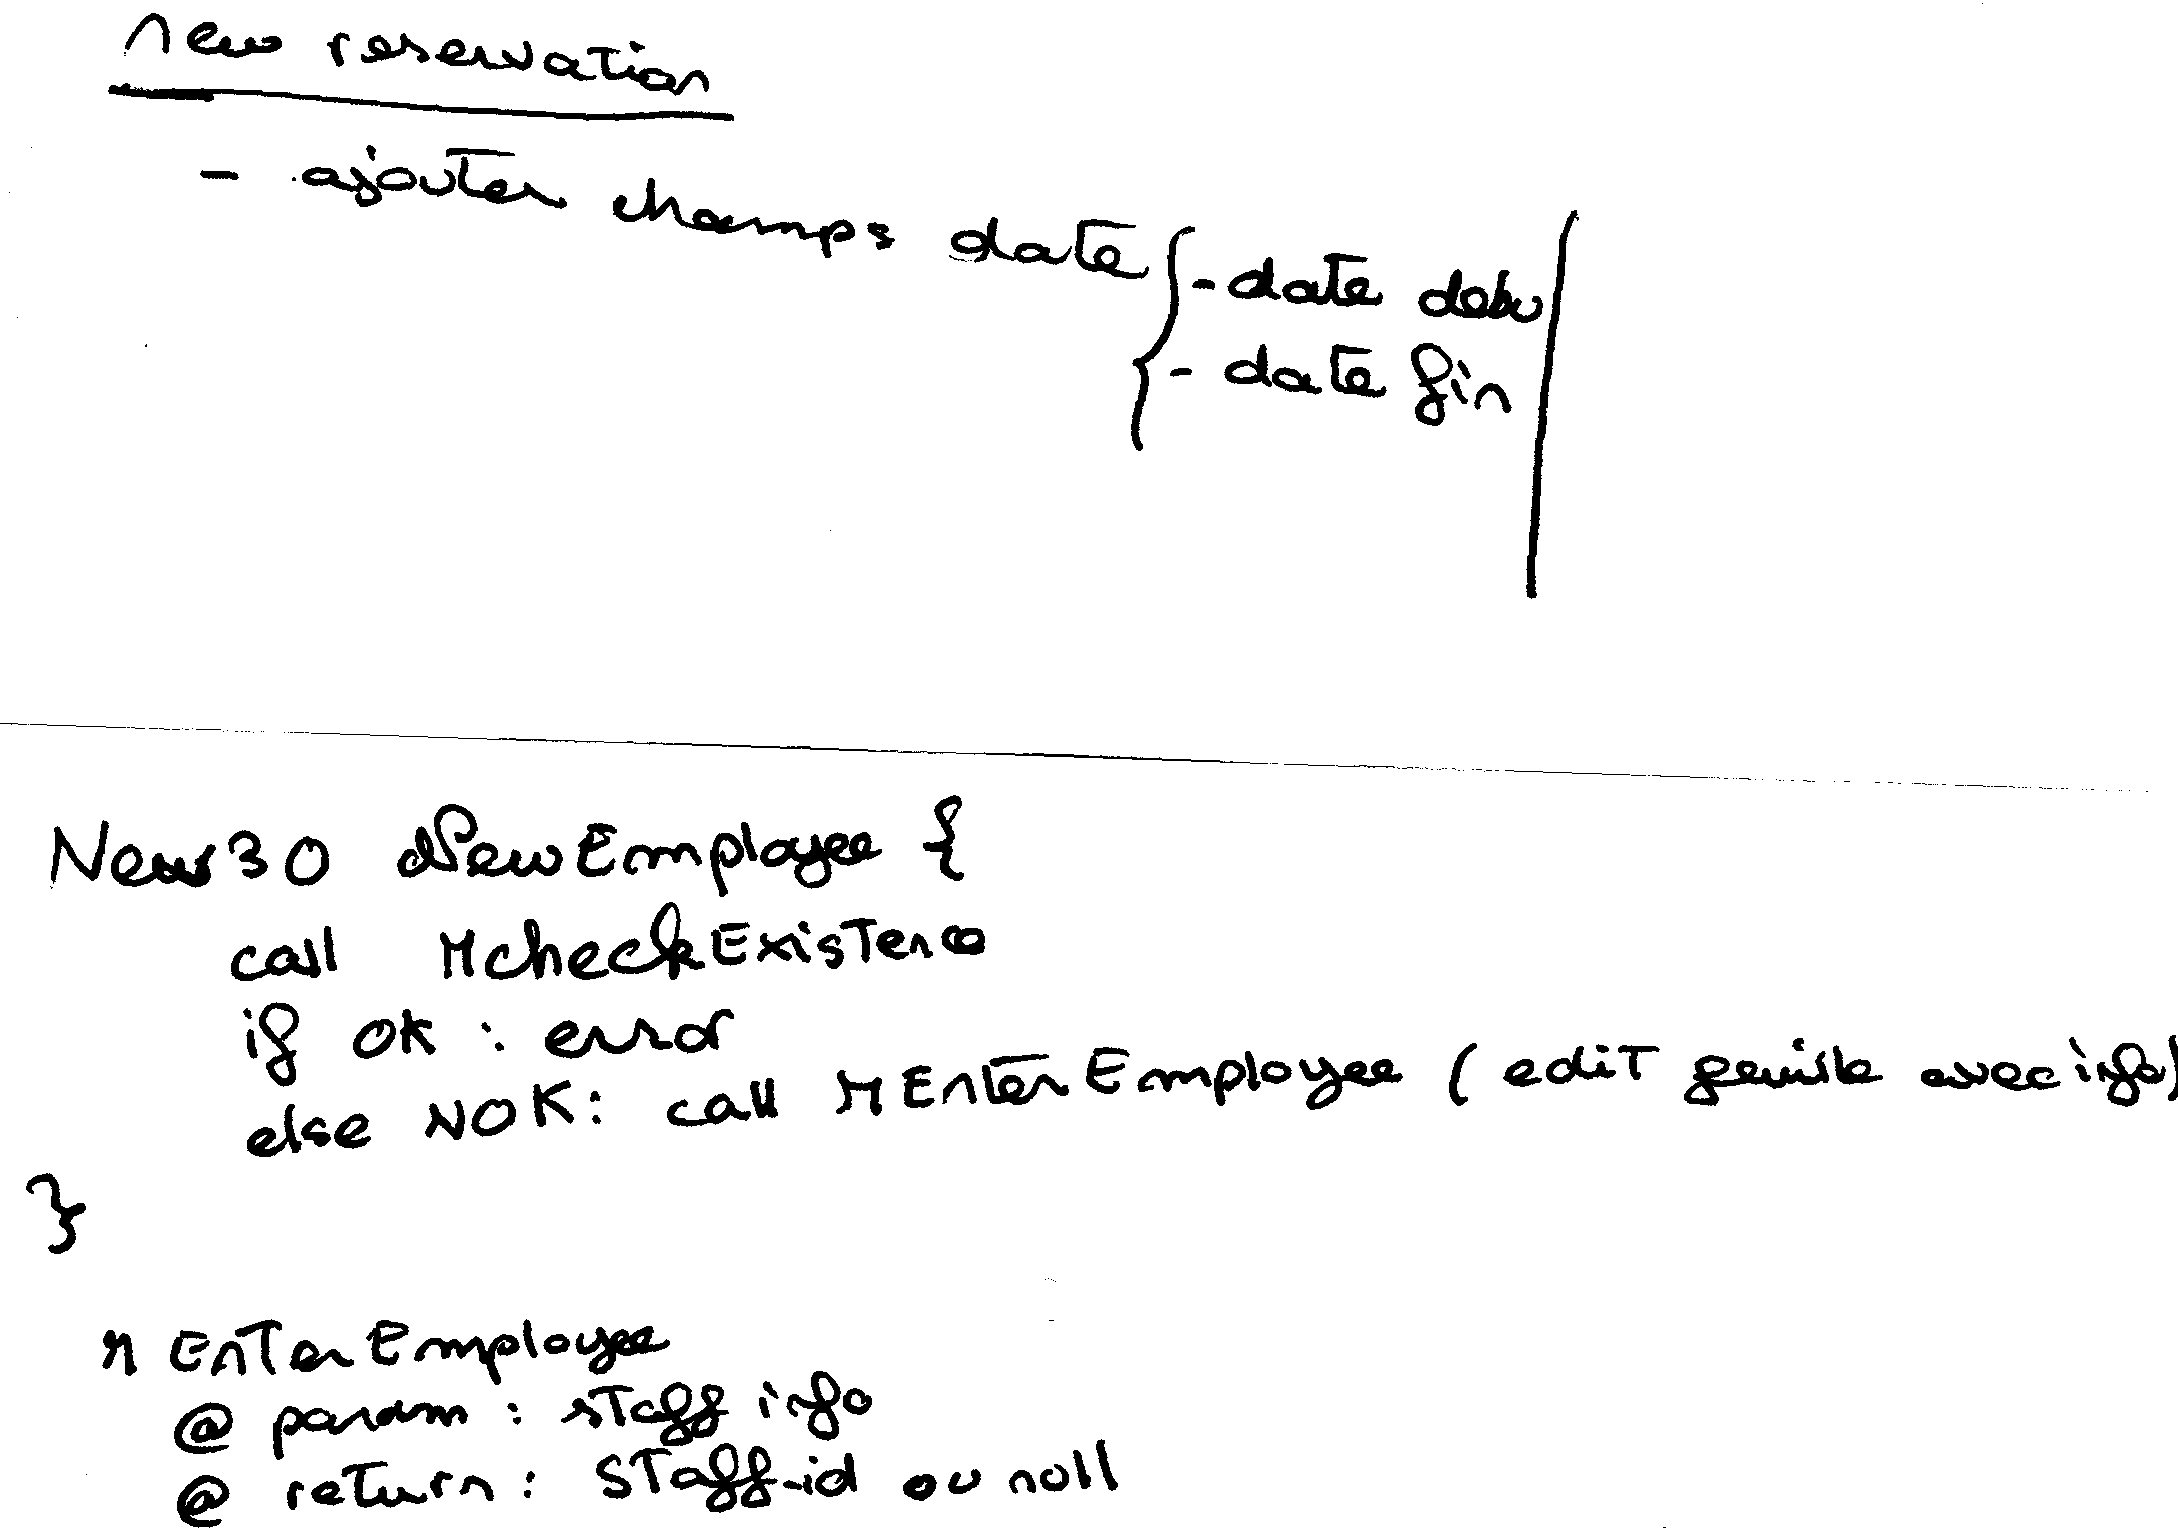 new reservation
- ajouter champs date { - date debu
- date fin
New30 NewEmployee {
call McheckExistence
if OK : error
else NOK : call MEnterEmployee (edit avec info)
}
MEnterEmployee
@ param : staff info
@ return : Staff_id ou null